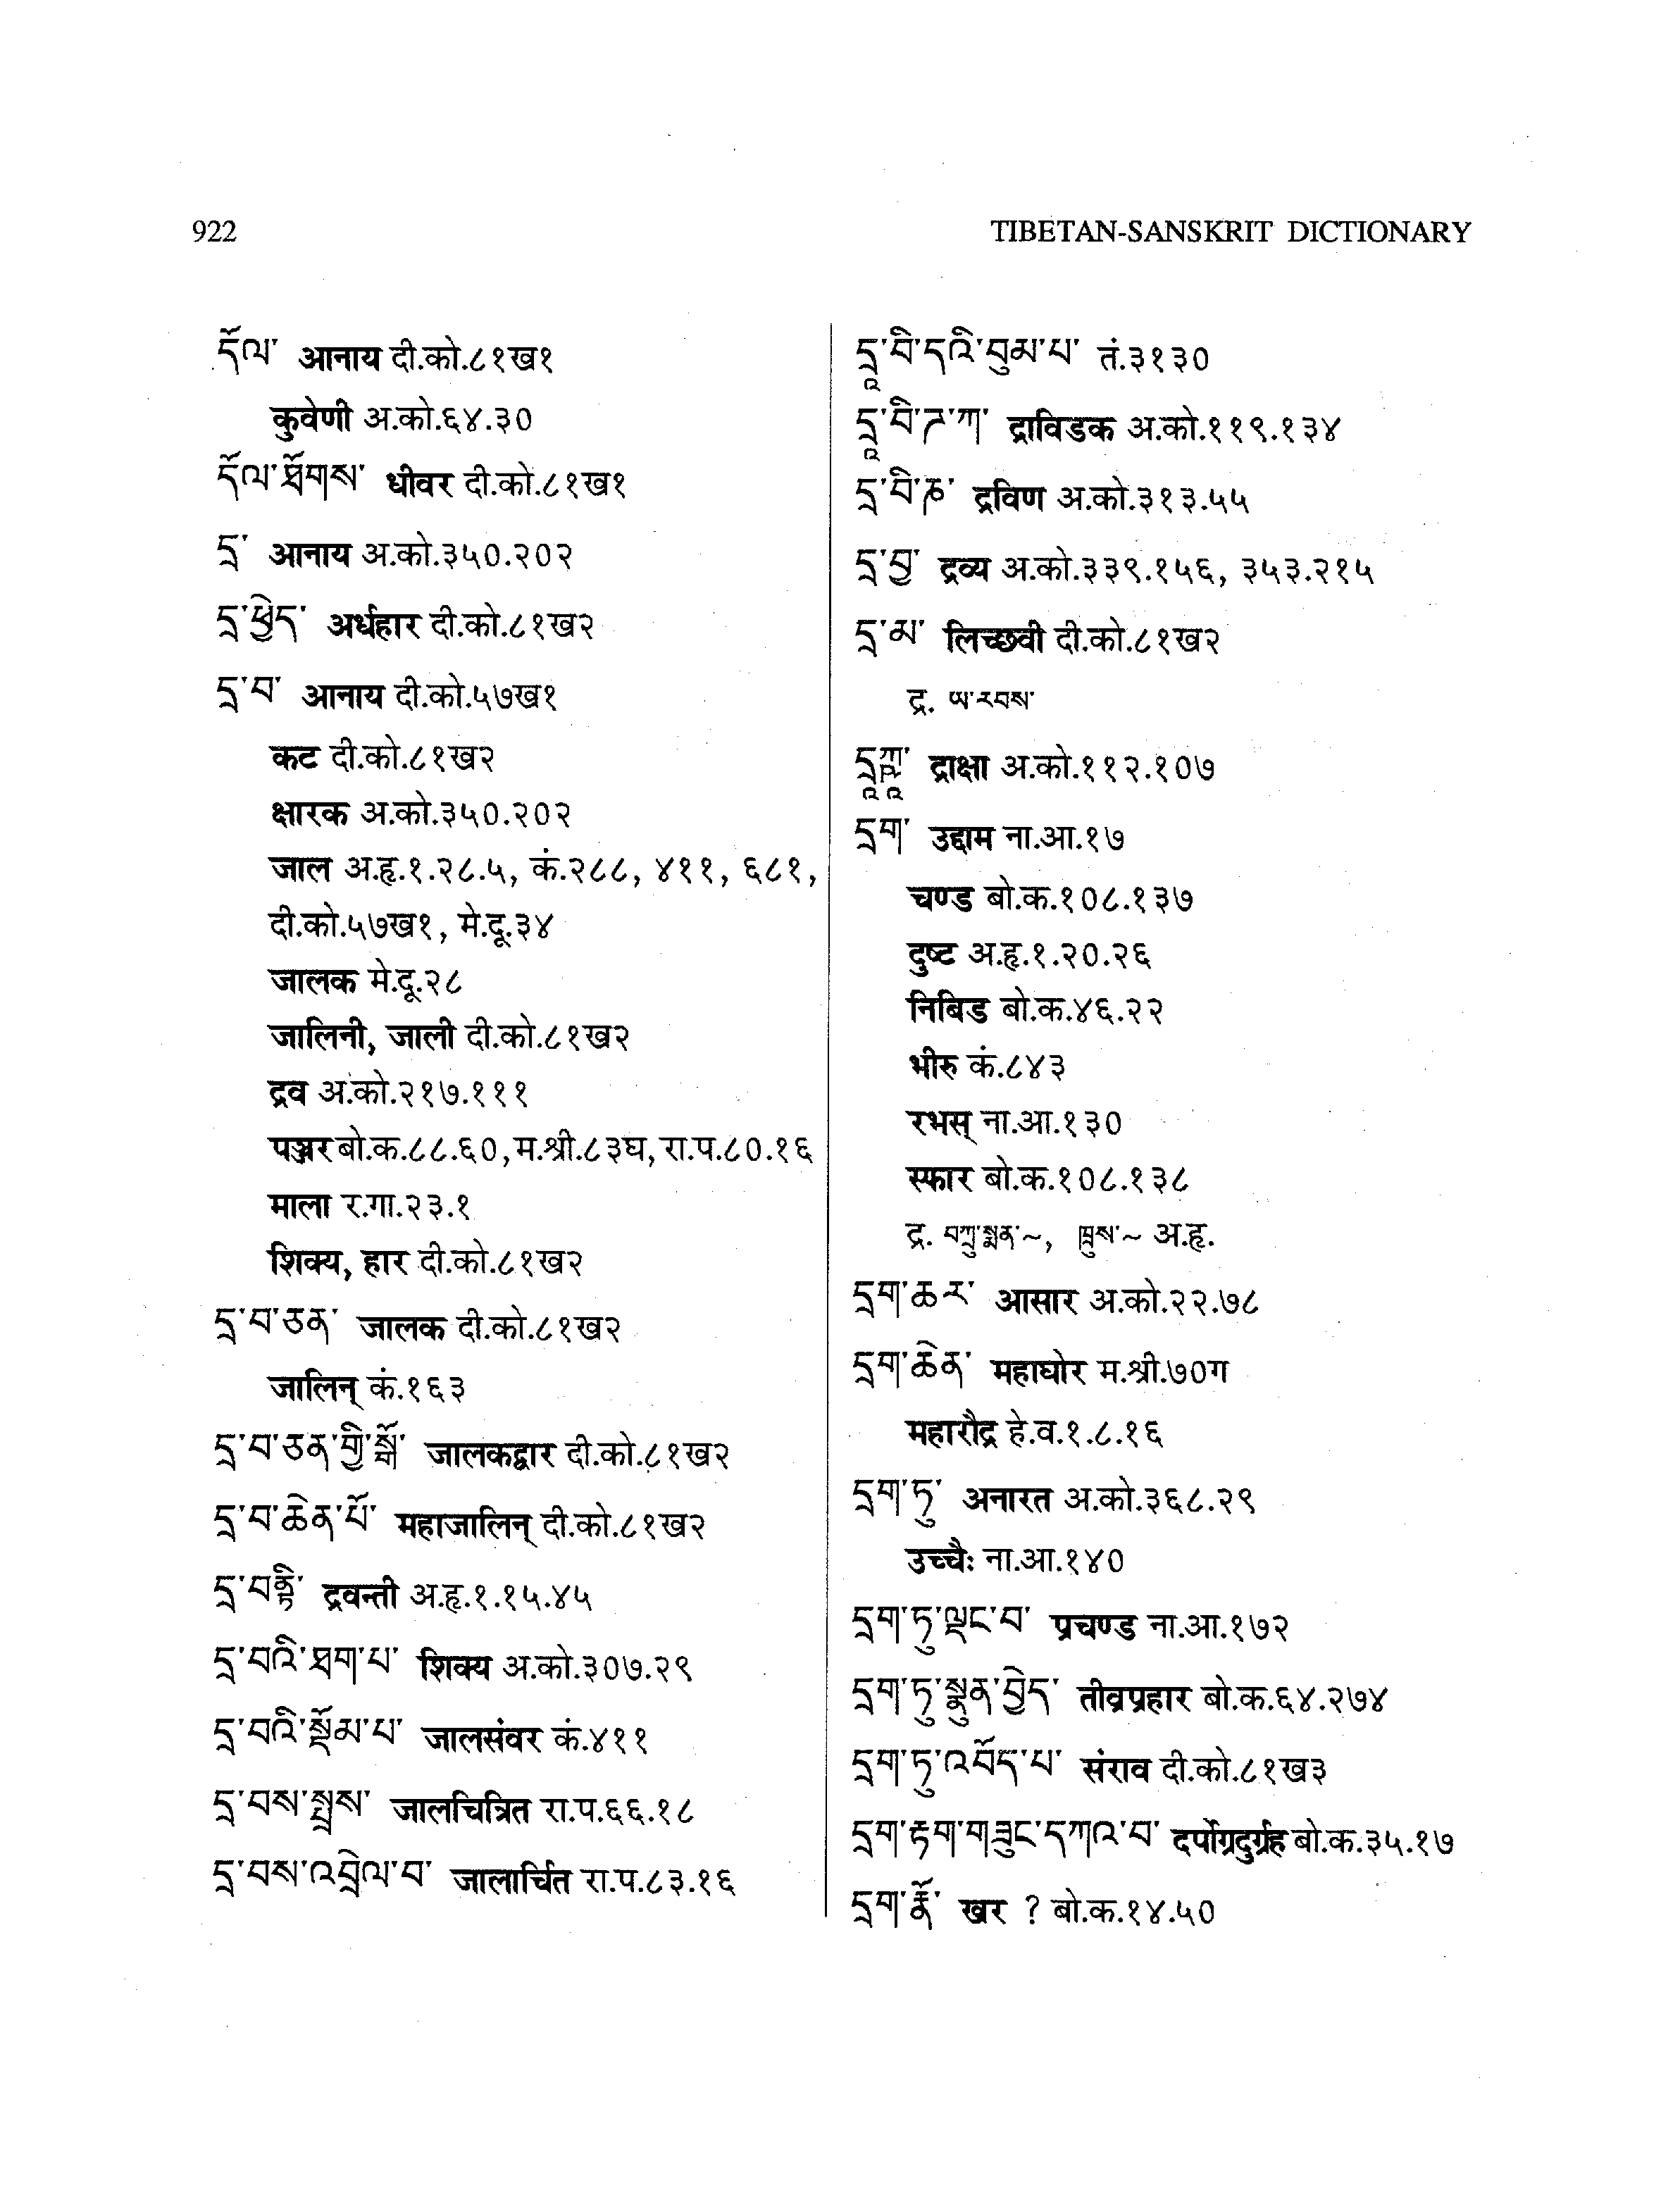 922
TIBETAN-SANSKRIT DICTIONARY
དོལ་ आनाय दी.को.८१ख१
कुवेणी अ.को.६४.३०
དོལ་ཐོགས་ धीवर दी.को.८१ख१
དྲ་ आनाय अ.को.३५०.२०२
དྲ་ཕྱེད་ अर्धहार दी.को.८१ख२
དྲ་བ་ आनाय दी.को.५७ख१
कट दी.को.८१ख२
क्षारक अ.को.३५०.२०२
जाल अ.हृ.१.२८.५, कं.२८८, ४११, ६८१,
दी.को.५७ख१, मे.दू.३४
जालक मे.दू.२८
जालिनी, जाली दी.को.८१ख२
द्रव अ.को.२१७.१११
पञ्जर बो.क.८८.६०, म.श्री.८३घ, रा.प.८०.१६
माला र.गा.२३.१
शिक्य, हार दी.को.८१ख२
དྲ་བ་ཅན་ जालक दी.को.८१ख२
जालिन् कं.१६३
དྲ་བ་ཅན་གྱི་སྒོ་ जालकद्वार दी.को.८१ख२
དྲ་བ་ཆེན་པོ་ महाजालिन् दी.को.८१ख२
དྲ་བནྟི་ द्रवन्ती अ.हृ.१.१५.४५
དྲ་བའི་ཐག་པ་ शिक्य अ.को.३०७.२९
དྲ་བའི་སྡོམ་པ་ जालसंवर कं.४११
དྲ་བས་སྤྲས་ जालचित्रित रा.प.६६.१८
དྲ་བས་འབྲེལ་བ་ जालार्चित रा.प.८३.१६
དྲཱ་བི་དའི་བུམ་པ་ तं.३१३०
དྲཱ་བི་ཌ་ཀ་ द्राविडक अ.को.११९.१३४
དྲ་བི་ཎ་ द्रविण अ.को.३१३.५५
དྲ་བྱ་ द्रव्य अ.को.३३९.१५६, ३५३.२१५
དྲ་མ་ लिच्छवी दी.को.८१ख२
द्र. ཡ་རབས་
དྲཱཀྵཱ་ द्राक्षा अ.को.११२.१०७
དྲག་ उद्दाम ना.आ.१७
चण्ड बो.क.१०८.१३७
दुष्ट अ.हृ.१.२०.२६
निबिड बो.क.४६.२२
भीरु कं.८४३
रभस् ना.आ.१३०
स्फार बो.क.१०८.१३८
द्र. བཀྲུ་སྨན་~, ཁྲུས་~ अ.हृ.
དྲག་ཆར་ आसार अ.को.२२.७८
དྲག་ཆེན་ महाघोर म.श्री.७०ग
महारौद्र हे.व.१.८.१६
དྲག་ཏུ་ अनारत अ.को.३६८.२९
उच्चैः ना.आ.१४०
དྲག་ཏུ་ལྡང་བ་ प्रचण्ड ना.आ.१७२
དྲག་ཏུ་སྣུན་བྱེད་ तीव्रप्रहार बो.क.६४.२७४
དྲག་ཏུ་འབོད་པ་ संराव दी.को.८१ख३
དྲག་རྟག་གཟུང་དཀའ་བ་ दर्पोग्रदुर्ग्रह बो.क.३५.१७
དྲག་རྣོ་ खर ? बो.क.१४.५०